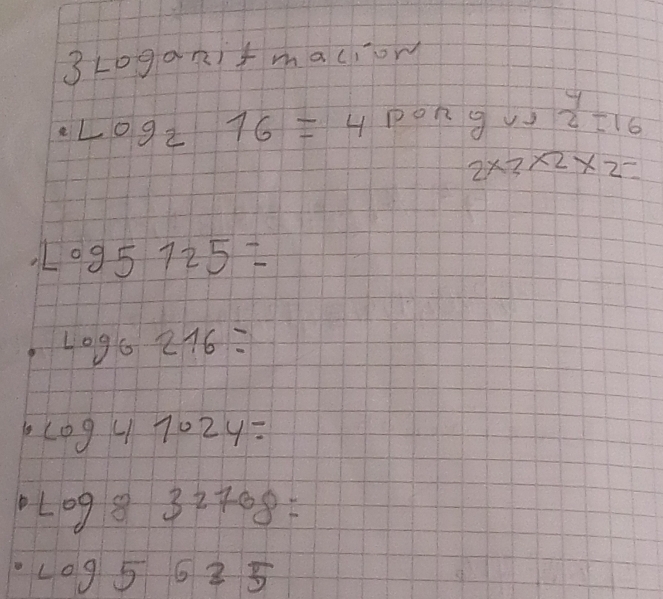 3 Logaritmación
• Log₂ 16 = 4 porque 2⁴ = 16
2x2x2x2=
• Log 5 125 =
• Log 6 216 =
• Log 4 1024 =
• Log 8 32768 =
• Log 5 625